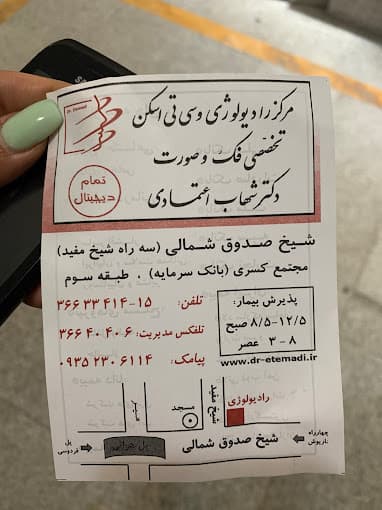 مرکز رادیولوژی و سی تی اسکن
تخصصی فک و صورت
دکتر شهاب اعتمادی
dr. Etemadi
تمام
دیجیتال
شیخ صدوق شمالی (سه راه شیخ مفید)
مجتمع کسری (بانک سرمایه) ، طبقه سوم
تلفن: ۳۶۶ ۳۳ ۴۱۴-۱۵
تلفکس مدیریت: ۳۶۶ ۴۰ ۴۰ ۶
پیامک: ۰۹۳۵ ۲۳۰ ۶۱۱۴
پذیرش بیمار:
۸/۵-۱۲/۵ صبح
۳-۸ عصر
www.dr-etemadi.ir
رادیولوژی
شیخ مفید
مسجد
شیخ صدوق شمالی
چهارراه
پل
فردوسی